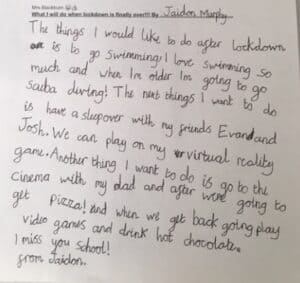 Mrs Blackburn
What I will do when lockdown is finally over!!! By Jaidon Murphy
The things I would like to do after lockdown
is to go swimming! I love swimming so
much and when I'm older I'm going to go
scuba diving! The next things I want to do
is have a sleepover with my friends Evan and
Josh. We can play on my virtual reality
game. Another thing I want to do is go to the
cinema with my dad and after we're going to
get pizza! And when we get back going play
video games and drink hot chocolate.
I miss you school!
from Jaidon.